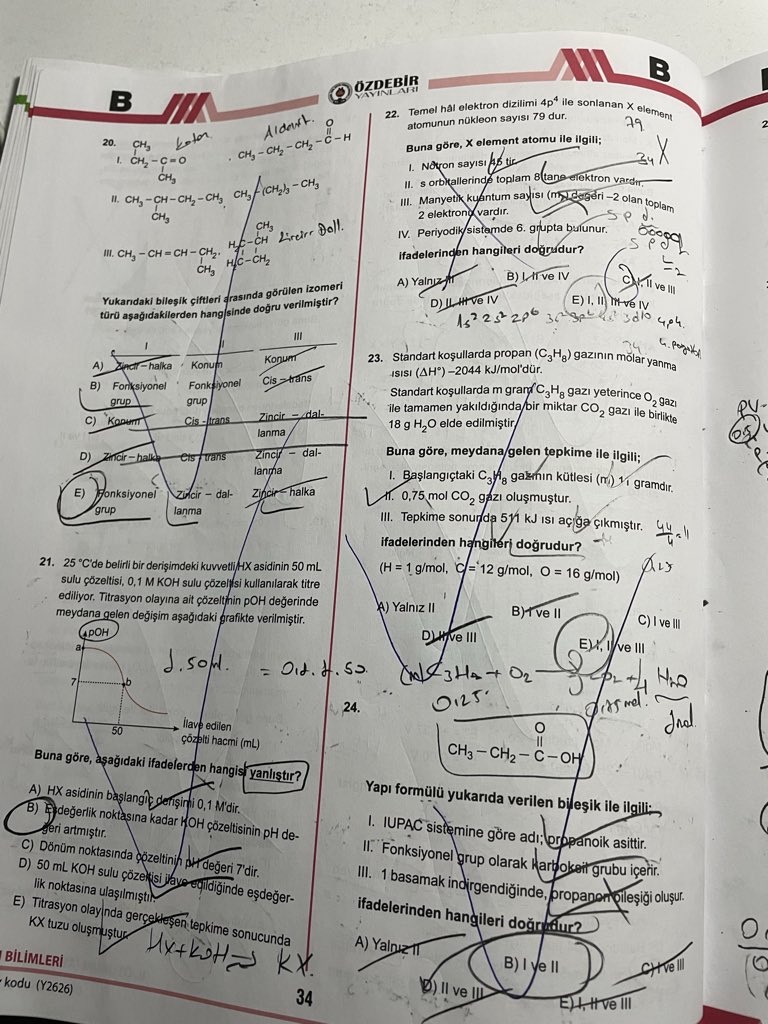 B
ÖZDEBİR
YAYINLARI
B
20.
CH3
I. CH2 – C = O
CH3
Keton
Aldehit
O
CH3 – CH2 – CH2 – C – H
II. CH3 – CH – CH2 – CH3
CH3
CH3 – (CH2)3 – CH3
III. CH3 – CH = CH – CH2
CH3
CH3
H2C – CH
H2C – CH2
Yukarıdaki bileşik çiftleri arasında görülen izomeri
türü aşağıdakilerden hangisinde doğru verilmiştir?
I II III
A) Zincir – halka Konum Konum
B) Fonksiyonel grup Fonksiyonel grup Cis – trans
C) Konum Cis - trans Zincir – dallanma
D) Zincir – halka Cis – trans Zincir – dallanma
E) Fonksiyonel grup Zincir – dallanma Zincir – halka
21. 25 °C'de belirli bir derişimdeki kuvvetli HX asidinin 50 mL
sulu çözeltisi, 0,1 M KOH sulu çözeltisi kullanılarak titre
ediliyor. Titrasyon olayına ait çözeltinin pOH değerinde
meydana gelen değişim aşağıdaki grafikte verilmiştir.
pOH
a
7
b
50
İlave edilen
çözelti hacmi (mL)
Buna göre, aşağıdaki ifadelerden hangisi yanlıştır?
A) HX asidinin başlangıç derişimi 0,1 M'dir.
B) Eşdeğerlik noktasına kadar KOH çözeltisinin pH de-
ğeri artmıştır.
C) Dönüm noktasında çözeltinin pH değeri 7'dir.
D) 50 mL KOH sulu çözeltisi ilave edildiğinde eşdeğer-
lik noktasına ulaşılmıştır.
E) Titrasyon olayında gerçekleşen tepkime sonucunda
KX tuzu oluşmuştur.
HX + KOH → KX
BİLİMLERİ
kodu (Y2626)
34
22. Temel hâl elektron dizilimi 4p4 ile sonlanan X element
atomunun nükleon sayısı 79 dur.
79
34 X
Buna göre, X element atomu ile ilgili;
I. Nötron sayısı 45 tir.
II. s orbitallerinde toplam 8 tane elektron vardır.
III. Manyetik kuantum sayısı (ml) değeri –2 olan toplam
2 elektronu vardır.
IV. Periyodik sistemde 6. grupta bulunur.
ifadelerinden hangileri doğrudur?
A) Yalnız III
B) I, II ve IV
C) I, II ve III
D) II, III ve IV
E) I, II, III ve IV
23. Standart koşullarda propan (C3H8) gazının molar yanma
ısısı (ΔH°) –2044 kJ/mol'dür.
Standart koşullarda m gram C3H8 gazı yeterince O2 gazı
ile tamamen yakıldığında bir miktar CO2 gazı ile birlikte
18 g H2O elde edilmiştir.
Buna göre, meydana gelen tepkime ile ilgili;
I. Başlangıçtaki C3H8 gazının kütlesi (m) 11 gramdır.
II. 0,75 mol CO2 gazı oluşmuştur.
III. Tepkime sonunda 511 kJ ısı açığa çıkmıştır.
ifadelerinden hangileri doğrudur?
(H = 1 g/mol, C = 12 g/mol, O = 16 g/mol)
A) Yalnız II
B) I ve II
C) I ve III
D) II ve III
E) I, II ve III
24.
O
CH3 – CH2 – C – OH
Yapı formülü yukarıda verilen bileşik ile ilgili;
I. IUPAC sistemine göre adı; propanoik asittir.
II. Fonksiyonel grup olarak karboksil grubu içerir.
III. 1 basamak indirgendiğinde, propanon bileşiği oluşur.
ifadelerinden hangileri doğrudur?
A) Yalnız II
B) I ve II
C) I ve III
D) II ve III
E) I, II ve III